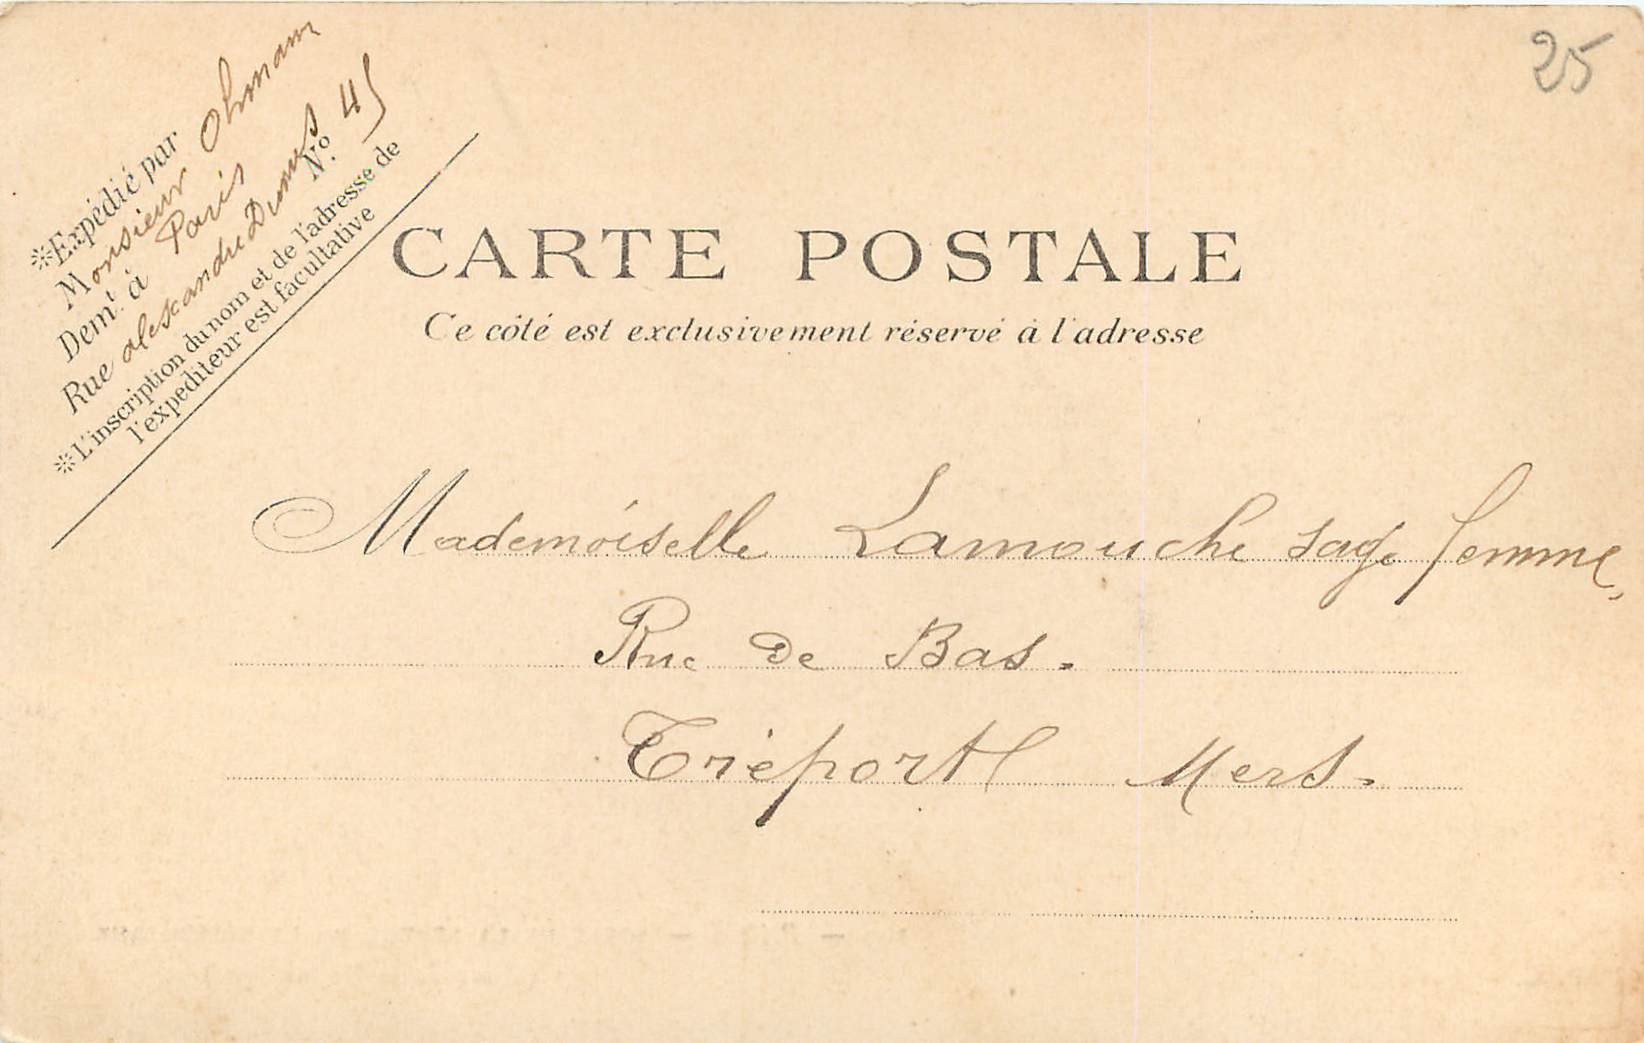 25
*Expédié par
Monsieur Ohmann
Dem.t à Paris
Rue alexandre Dumas N.o 45
*L'inscription du nom et de l'adresse de
l'expéditeur est facultative
CARTE POSTALE
Ce côté est exclusivement réservé à l'adresse
Mademoiselle Lamouche sage femme,
Rue De Bas.
Tréport Mers.